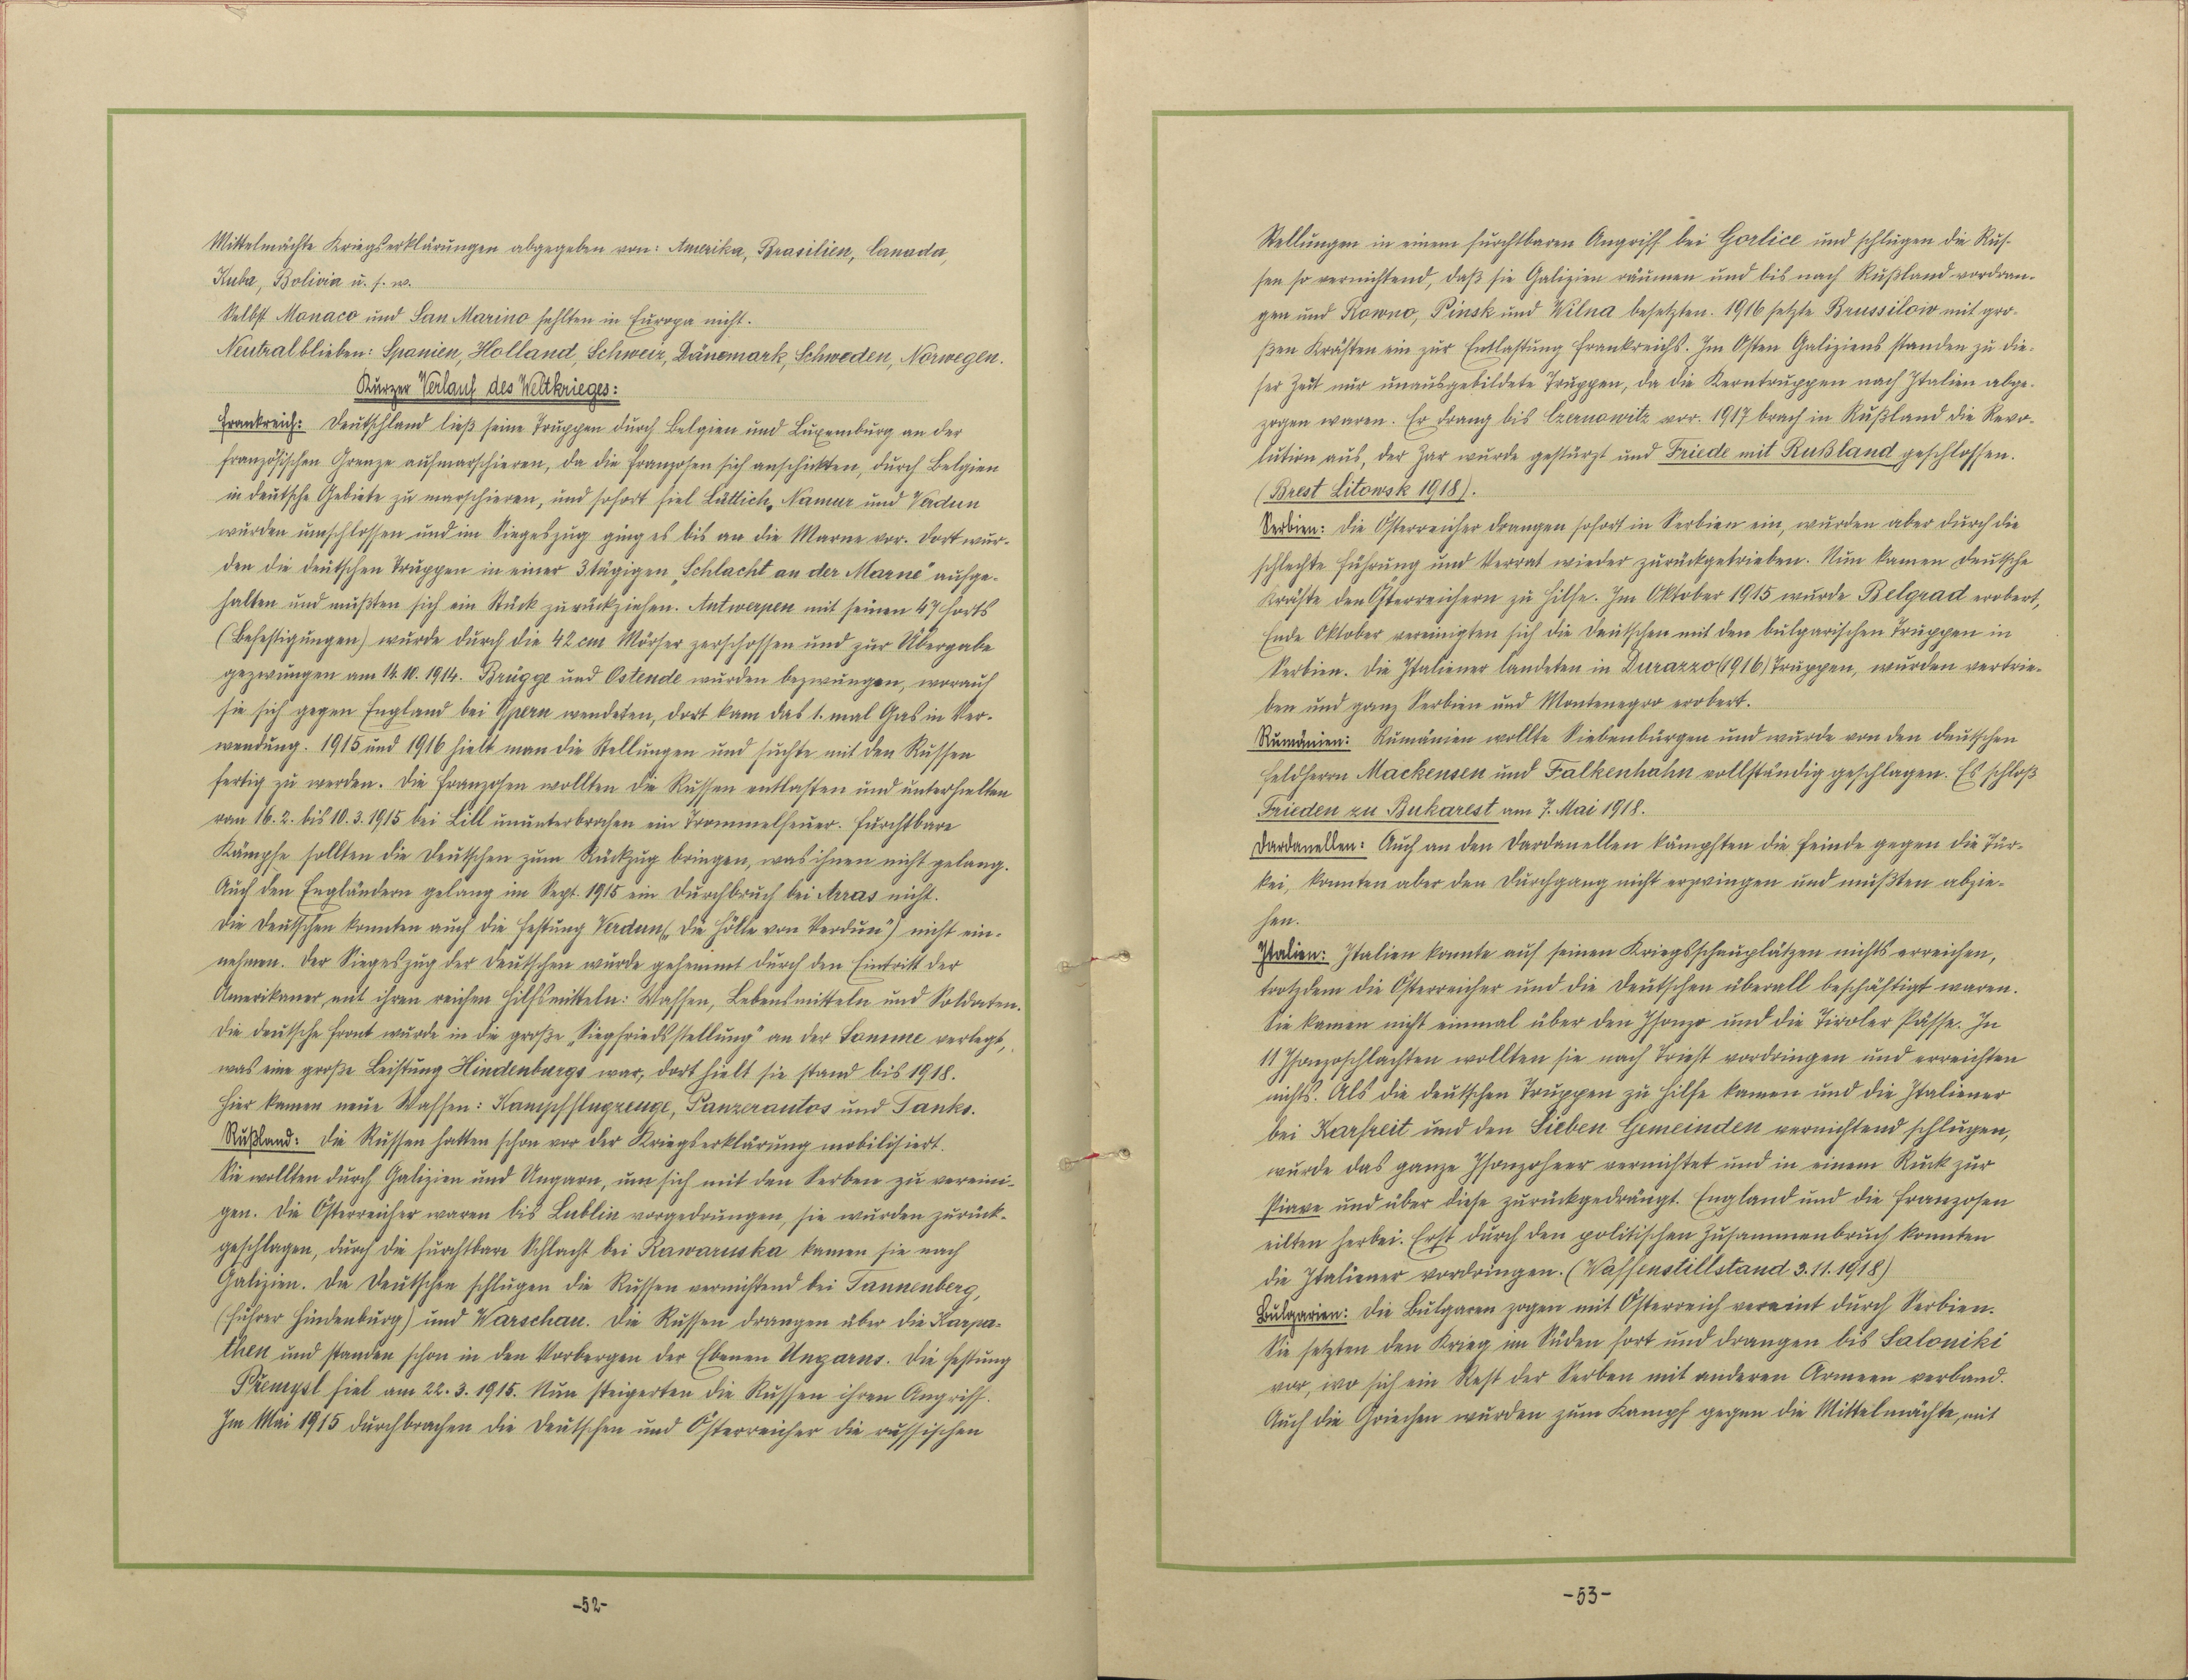 Mittelmächte Kriegserklärungen abgegeben von: Amerika, Brasilien, Canada,
Kuba, Bolivia u. s. w.
Selbst Monaco und San Marino fehlten in Europa nicht.
Neutral blieben: Spanien, Holland, Schweiz, Dänemark, Schweden, Norwegen.
Kurzer Verlauf des Weltkrieges:
Frankreich: Deutschland ließ seine Truppen durch Belgien und Luxemburg an der
französischen Grenze aufmarschieren, da die Franzosen sich anschickten, durch Belgien
in deutsche Gebiete zu marschieren, und sofort fiel Lüttich, Namur und Verdun
wurden umschlossen und im Siegeszug ging es bis an die Marne vor. Dort wur-
den die deutschen Truppen in einer 3tägigen „Schlacht an der Marne" aufge-
halten und mußten sich ein Stück zurückziehen. Antwerpen mit seinen 47 Forts
(Befestigungen) wurde durch die 42 cm Mörser zerschossen und zur Übergabe
gezwungen am 14.10.1914. Brügge und Ostende wurden bezwungen, worauf
sie sich gegen England bei Ypern wendeten, dort kam das 1. mal Gas in Ver-
wendung. 1915 und 1916 hielt man die Stellungen und suchte mit den Russen
fertig zu werden. Die Franzosen wollten die Russen entlasten und unterhielten
vom 16.2. bis 10.3.1915 bei Lill ununterbrochen ein Trommelfeuer. Furchtbare
Kämpfe sollten die Deutschen zum Rückzug bringen, was ihnen nicht gelang.
Auch den Engländern gelang im Sept. 1915 ein Durchbruch bei Arras nicht.
Die Deutschen konnten auch die Festung Verdun („Die Hölle von Verdun") nicht ein-
nehmen. Der Siegeszug der Deutschen wurde gehemmt durch den Eintritt der
Amerikaner mit ihren reichen Hilfsmitteln: Waffen, Lebensmitteln und Soldaten.
Die deutsche Front wurde in die große „Siegfriedsstellung" an der Somme verlegt,
was eine große Leistung Hindenburgs war, dort hielt sie stand bis 1918.
Hier kamen neue Waffen: Kampfflugzeuge, Panzerautos und Tanks.
Rußland: Die Russen hatten schon vor der Kriegserklärung mobilisiert.
Sie wollten durch Galizien und Ungarn, um sich mit den Serben zu vereini-
gen. Die Österreicher waren bis Lublin vorgedrungen, sie wurden zurück-
geschlagen, durch die furchtbare Schlacht bei Rawaruska kamen sie nach
Galizien. Die Deutschen schlugen die Russen vernichtend bei Tannenberg,
(Führer Hindenburg) und Warschau. Die Russen drangen über die Karpa-
then und standen schon in den Vorbergen der Ebenen Ungarns. Die Festung
Přemysl fiel am 22.3.1915. Nun steigerten die Russen ihren Angriff.
Im Mai 1915 durchbrachen die Deutschen und Österreicher die russischen
-52-
Stellungen in einem furchtbaren Angriff bei Gorlice und schlugen die Rus-
sen so vernichtend, daß sie Galizien räumen und bis nach Rußland vordran-
gen und Rowno, Pinsk und Wilna besetzten. 1916 setzte Brussilow mit gro-
ßen Kräften ein zur Entlastung Frankreichs. Im Osten Galiziens standen zu die-
ser Zeit nur unausgebildete Truppen, da die Kerntruppen nach Italien abge-
zogen waren. Er drang bis Czernowitz vor. 1917 brach in Rußland die Revo-
lution aus, der Zar wurde gestürzt und Friede mit Rußland geschlossen.
(Brest Litowsk 1918).
Serbien: Die Österreicher drangen sofort in Serbien ein, wurden aber durch die
schlechte Führung und Verrat wieder zurückgetrieben. Nun kamen deutsche
Kräfte den Österreichern zu Hilfe. Im Oktober 1915 wurde Belgrad erobert,
Ende Oktober vereinigten sich die Deutschen mit den bulgarischen Truppen in
Serbien. Die Italiener landeten in Durazzo (1916) Truppen, wurden vertrie-
ben und ganz Serbien und Montenegro erobert.
Rumänien: Rumänien wollte Siebenbürgen und wurde von den deutschen
Feldherrn Mackensen und Falkenhahn vollständig geschlagen. Es schloß
Frieden zu Bukarest am 7. Mai 1918.
Dardanellen: Auch an den Dardanellen kämpften die Feinde gegen die Tür-
kei, konnten aber den Durchgang nicht erzwingen und mußten abzie-
hen.
Italien: Italien konnte auf seinen Kriegsschauplätzen nichts erreichen,
trotzdem die Österreicher und die Deutschen überall beschäftigt waren.
Sie kamen nicht einmal über den Isonzo und die Tiroler Pässe. In
11 Isonzoschlachten wollten sie nach Triest vordringen und erreichten
nichts. Als die deutschen Truppen zu Hilfe kamen und die Italiener
bei Karfreit und den Sieben Gemeinden vernichtend schlugen,
wurde das ganze Isonzoheer vernichtet und in einem Ruck zur
Piave und über diese zurückgedrängt. England und die Franzosen
eilten herbei. Erst durch den politischen Zusammenbruch konnten
die Italiener vordringen. (Waffenstillstand 3.11.1918)
Bulgarien: Die Bulgaren zogen mit Österreich vereint durch Serbien.
Sie setzten den Krieg im Süden fort und drangen bis Saloniki
vor, wo sich ein Rest der Serben mit anderen Armeen verband.
Auch die Griechen wurden zum Kampf gegen die Mittelmächte, mit
-53-